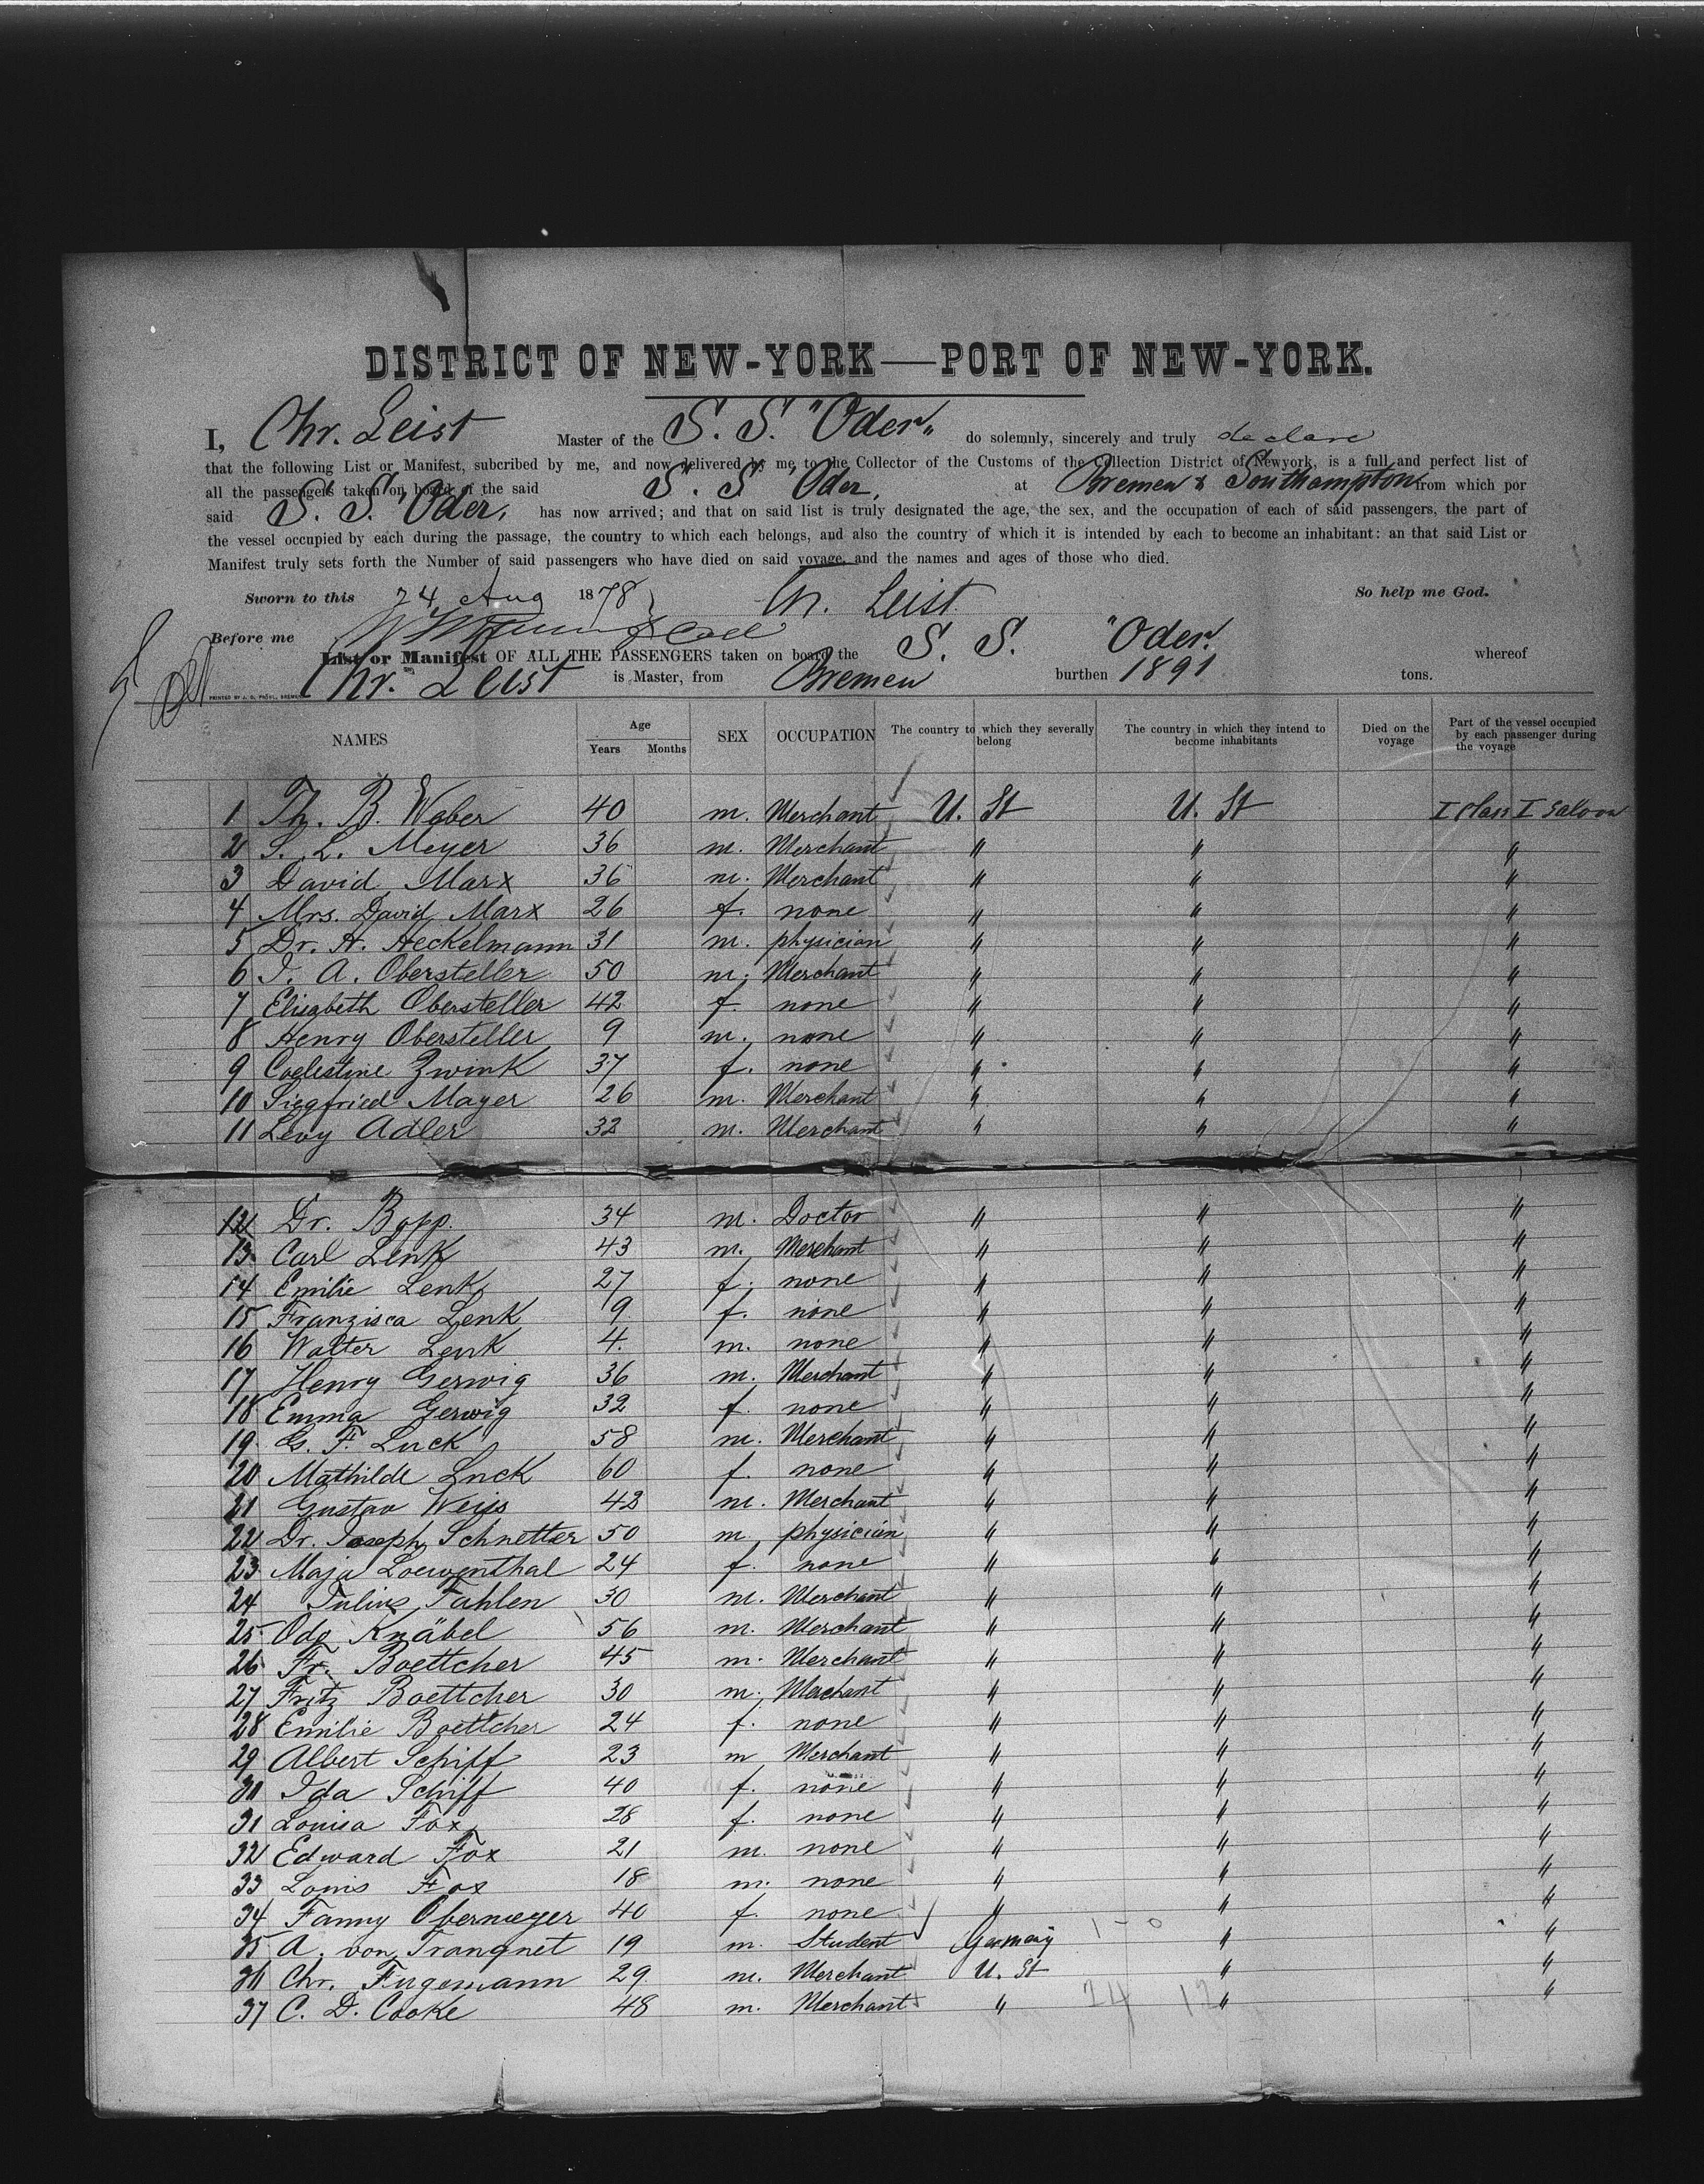 DISTRICT OF NEW-YORK—PORT OF NEW-YORK.
I, Chr. Leist Master of the S. S. "Oder" do solemnly, sincerely and truly declare
that the following List or Manifest, subcribed by me, and now delivered by me to the Collector of the Customs of the Collection District of Newyork, is a full and perfect list of
all the passengers taken on board of the said S. S. Oder, at Bremen & Southampton from which por
said S. S. Oder, has now arrived; and that on said list is truly designated the age, the sex, and the occupation of each of said passengers, the part of
the vessel occupied by each during the passage, the country to which each belongs, and also the country of which it is intended by each to become an inhabitant: an that said List or
Manifest truly sets forth the Number of said passengers who have died on said voyage, and the names and ages of those who died.
Sworn to this 24 Aug 1878 Chr. Leist So help me God.
Before me
List or Manifest OF ALL THE PASSENGERS taken on board the S. S. "Oder" whereof
Chr. Leist is Master, from Bremen burthen 1891 tons.
NAMES Age Years Months SEX OCCUPATION The country to which they severally belong The country in which they intend to become inhabitants Died on the voyage Part of the vessel occupied by each passenger during the voyage
1 Th. B. Weber 40 m. Merchant U. St U. St I Class I Saloon
2 S. L. Meyer 36 m. Merchant " " "
3 David Marx 36 m. Merchant " " "
4 Mrs. David Marx 26 f. none " " "
5 Dr. H. Heckelmann 31 m. physician " " "
6 J. A. Obersteller 50 m. Merchant " " "
7 Eliezbeth Obersteller 42 f. none " " "
8 Henry Obersteller 9 m. none " " "
9 Coelestine Zwink 37 f. none " " "
10 Siegfried Mayer 26 m. Merchant " " "
11 Levy Adler 32 m. Merchant " " "
12 Dr. Bopp. 34 m. Doctor " " "
13 Carl Lenk 43 m. Merchant " " "
14 Emilie Lenk 27 f. none " " "
15 Franzisca Lenk 9 f. none " " "
16 Walter Lenk 4. m. none " " "
17 Henry Gerwig 36 m. Merchant " " "
18 Emma Gerwig 32 f. none " " "
19 G. F. Luck 58 m. Merchant " " "
20 Mathilde Luck 60 f. none " " "
21 Gustav Weiss 42 m. Merchant " " "
22 Dr. Joseph Schnetter 50 m. physician " " "
23 Maja Loewenthal 24 f. none " " "
24 Julius Fahlen 30 m. Merchant " " "
25 Odo Knäbel 56 m. Merchant " " "
26 Fr. Boettcher 45 m. Merchant " " "
27 Fritz Boettcher 30 m. Merchant " " "
28 Emilie Boettcher 24 f. none " " "
29 Albert Schiff 23 m Merchant " " "
30 Ida Schiff 40 f. none " " "
31 Louisa Fox 28 f. none " " "
32 Edward Fox 21 m. none " " "
33 Louis Fox 18 m. none " " "
34 Fanny Obermeyer 40 f. none " " "
35 A. von Trangnet 19 m. Student Germany " "
36 Chr. Fugemann 29 m. Merchant U. St " "
37 C. D. Cooke 48 m. Merchant " " "